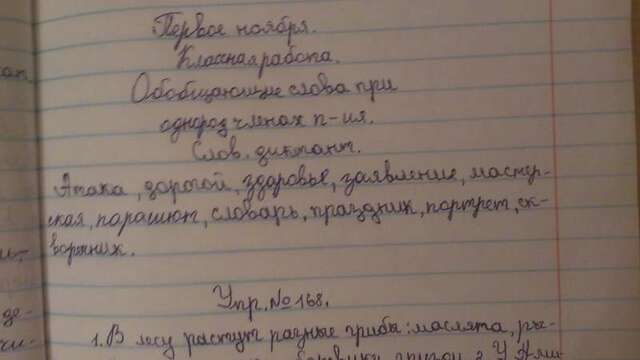 Первое ноября.
Классная работа.
Обобщающие слова при
однород. членах п-ия.
Слов. диктант.
Атака, дорогой, здоровье, заявление, мастер-
ская, парашют, словарь, праздник, портрет, ск-
Упр. № 168.
1. В лесу растут разные грибы: маслята, ры-